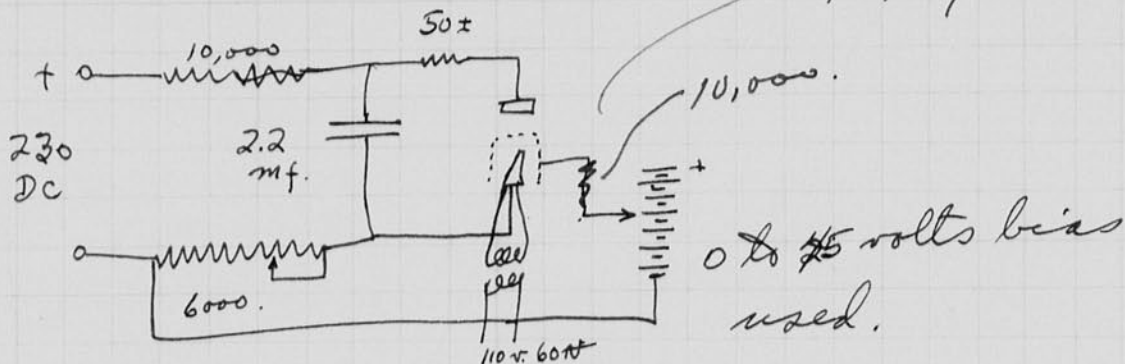 50±
10,000
+
10,000.
230
DC
2.2
mf.
+
0 to 45 volts bias
used.
6000.
110 v. 60~